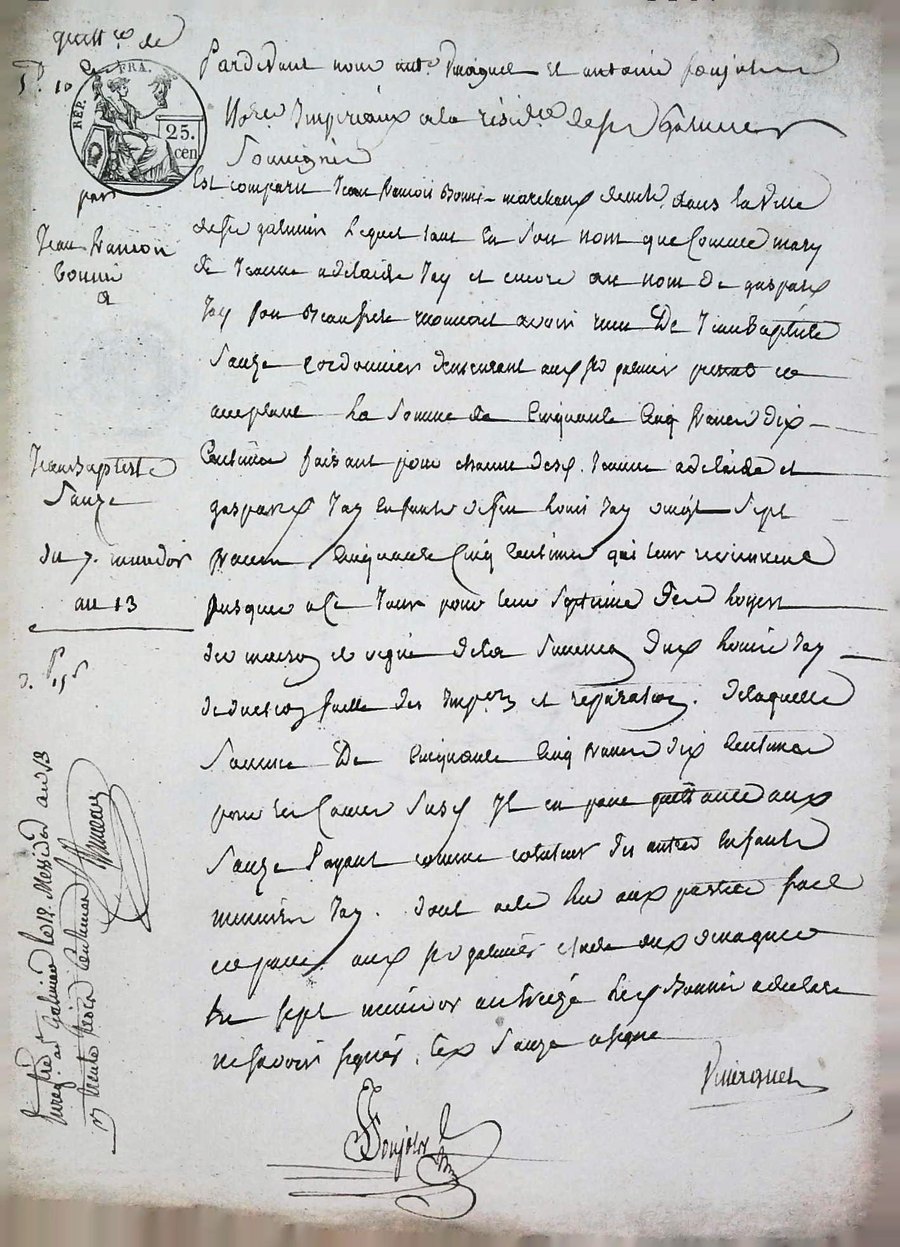 quitt.ce de
RÉP. FRA.
25.
cen
par
Jean francois
bonni
a
Jean Baptiste
Sauze
du 7. messidor
an 13
Pardevant nous ant.e et antoine
No.res Imperiaux a la résid.ce de st Galmier
Soussignés
Est comparu Jean francois Bonni marchand dem.t dans la Ville
de st galmier Lequel tant En Son nom que Comme mary
de Jeanne adelaide Jay et encore au nom de gaspard
Jay Son Beaufrere reconnoit avoir reçu De Jean Baptiste
Sauze Cordonnier demeurant aud. st galmier present et
acceptant La Somme de Cinquante Cinq francs dix
Centimes faisant pour chacun desd. Jeanne adelaide et
gaspard Jay Enfants de feu Louis Jay vingt Sept
francs Cinquante Cinq Centimes qui leur reviennent
Jusques a Ce Jour pour leur Septieme des Loyers
des maison et vigne de la Succession dud. Louis Jay
deduction faitte des Impon.s et reparations. de laquelle
Somme De Cinquante Cinq francs dix Centimes
pour les Causes Susd. Il en passe quittance aud.
Sauze Payant comme cotuteur des autres Enfants
mineurs Jay. dont acte Lu aux parties fait
et passé aud. st galmier etude dud.
Le Sept messidor an treize Led. Bonni a declaré
ne Savoir Signer, Led. Sauze a signé
Enreg.ré a st Galmier le 12 Messidor an 13
trente Centimes